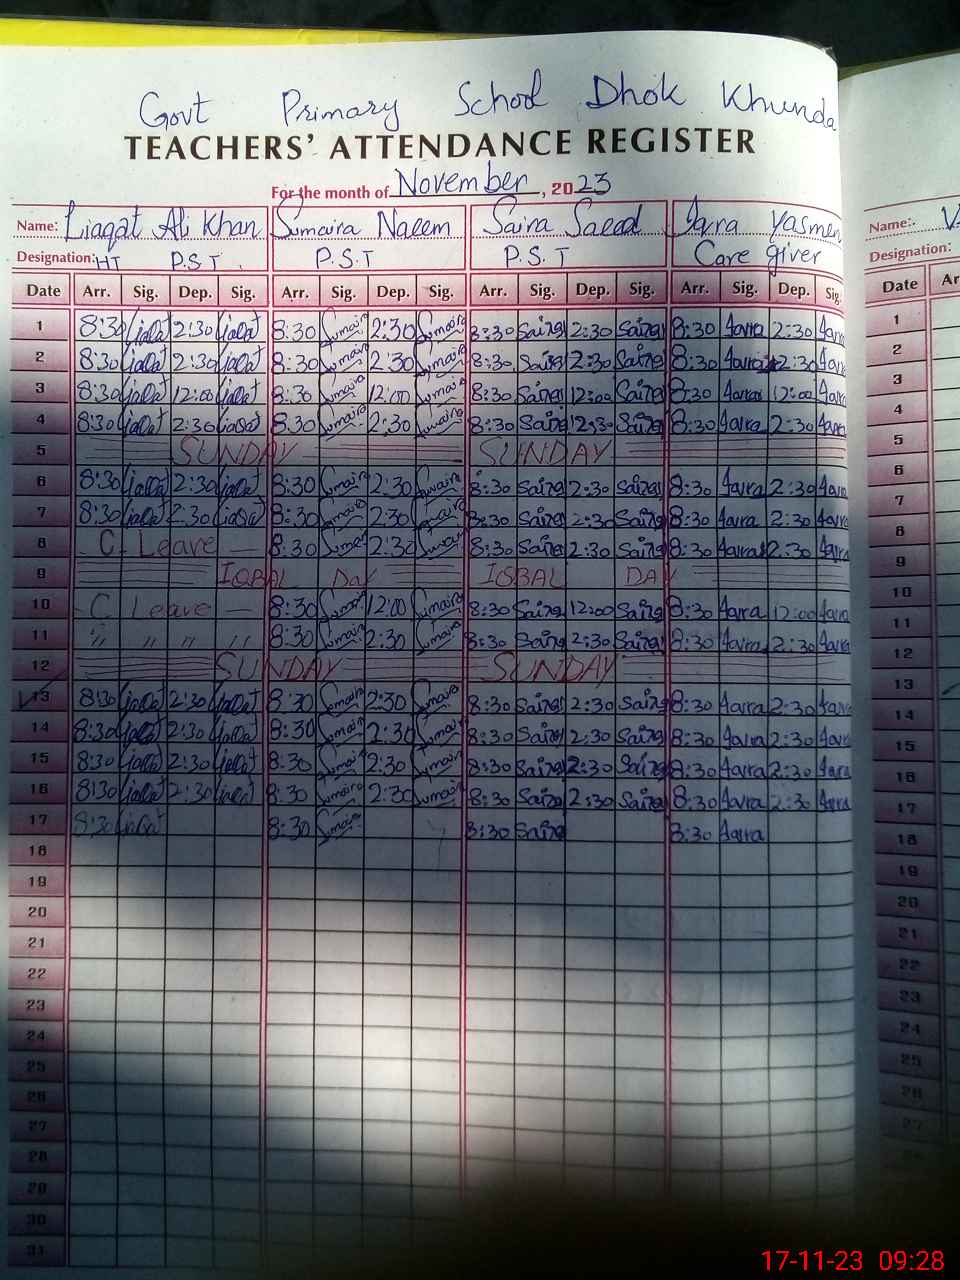 Govt Primary School Dhok Khunda
TEACHERS' ATTENDANCE REGISTER
For the month of November, 2023
Name: Liaqat Ali Khan Sumaira Naeem Saira Saeed Iqra Yasmen Name:
Designation: HT P.S.T. P.S.T P.S.T Care giver Designation:
Date Arr. Sig. Dep. Sig. Arr. Sig. Dep. Sig. Arr. Sig. Dep. Sig. Arr. Sig. Dep. Sig. Date
1 8:30 Liaqat 2:30 Liaqat 8:30 Sumaira 2:30 Sumaira 8:30 Saira 2:30 Saira 8:30 Iqra 2:30 Iqra 1
2 8:30 Liaqat 2:30 Liaqat 8:30 Sumaira 2:30 Sumaira 8:30 Saira 2:30 Saira 8:30 Iqra 2:30 Iqra 2
3 8:30 Liaqat 12:00 Liaqat 8:30 Sumaira 12:00 Sumaira 8:30 Saira 12:00 Saira 8:30 Iqra 12:00 Iqra 3
4 8:30 Liaqat 2:30 Liaqat 8:30 Sumaira 2:30 Sumaira 8:30 Saira 12:30 Saira 8:30 Iqra 2:30 Iqra 4
5 SUNDAY SUNDAY 5
6 8:30 Liaqat 2:30 Liaqat 8:30 Sumaira 2:30 Sumaira 8:30 Saira 2:30 Saira 8:30 Iqra 2:30 Iqra 6
7 8:30 Liaqat 2:30 Liaqat 8:30 Sumaira 2:30 Sumaira 8:30 Saira 2:30 Saira 8:30 Iqra 2:30 Iqra 7
8 C. Leave — 8:30 Sumaira 2:30 Sumaira 8:30 Saira 2:30 Saira 8:30 Iqra 2:30 Iqra 8
9 IQBAL Day IQBAL DAY 9
10 C. Leave — 8:30 Sumaira 12:00 Sumaira 8:30 Saira 12:00 Saira 8:30 Iqra 12:00 Iqra 10
11 " " " " 8:30 Sumaira 2:30 Sumaira 8:30 Saira 2:30 Saira 8:30 Iqra 2:30 Iqra 11
12 SUNDAY SUNDAY 12
13 8:30 Liaqat 2:30 Liaqat 8:30 Sumaira 2:30 Sumaira 8:30 Saira 2:30 Saira 8:30 Iqra 2:30 Iqra 13
14 8:30 Liaqat 2:30 Liaqat 8:30 Sumaira 2:30 Sumaira 8:30 Saira 2:30 Saira 8:30 Iqra 2:30 Iqra 14
15 8:30 Liaqat 2:30 Liaqat 8:30 Sumaira 2:30 Sumaira 8:30 Saira 2:30 Saira 8:30 Iqra 2:30 Iqra 15
16 8:30 Liaqat 2:30 Liaqat 8:30 Sumaira 2:30 Sumaira 8:30 Saira 2:30 Saira 8:30 Iqra 2:30 Iqra 16
17 8:30 Liaqat 8:30 Sumaira 8:30 Saira 8:30 Iqra 17
18 18
19 19
20 20
21 21
22 22
23 23
24 24
25 25
26 26
27 27
28
29
30
31
17-11-23 09:28